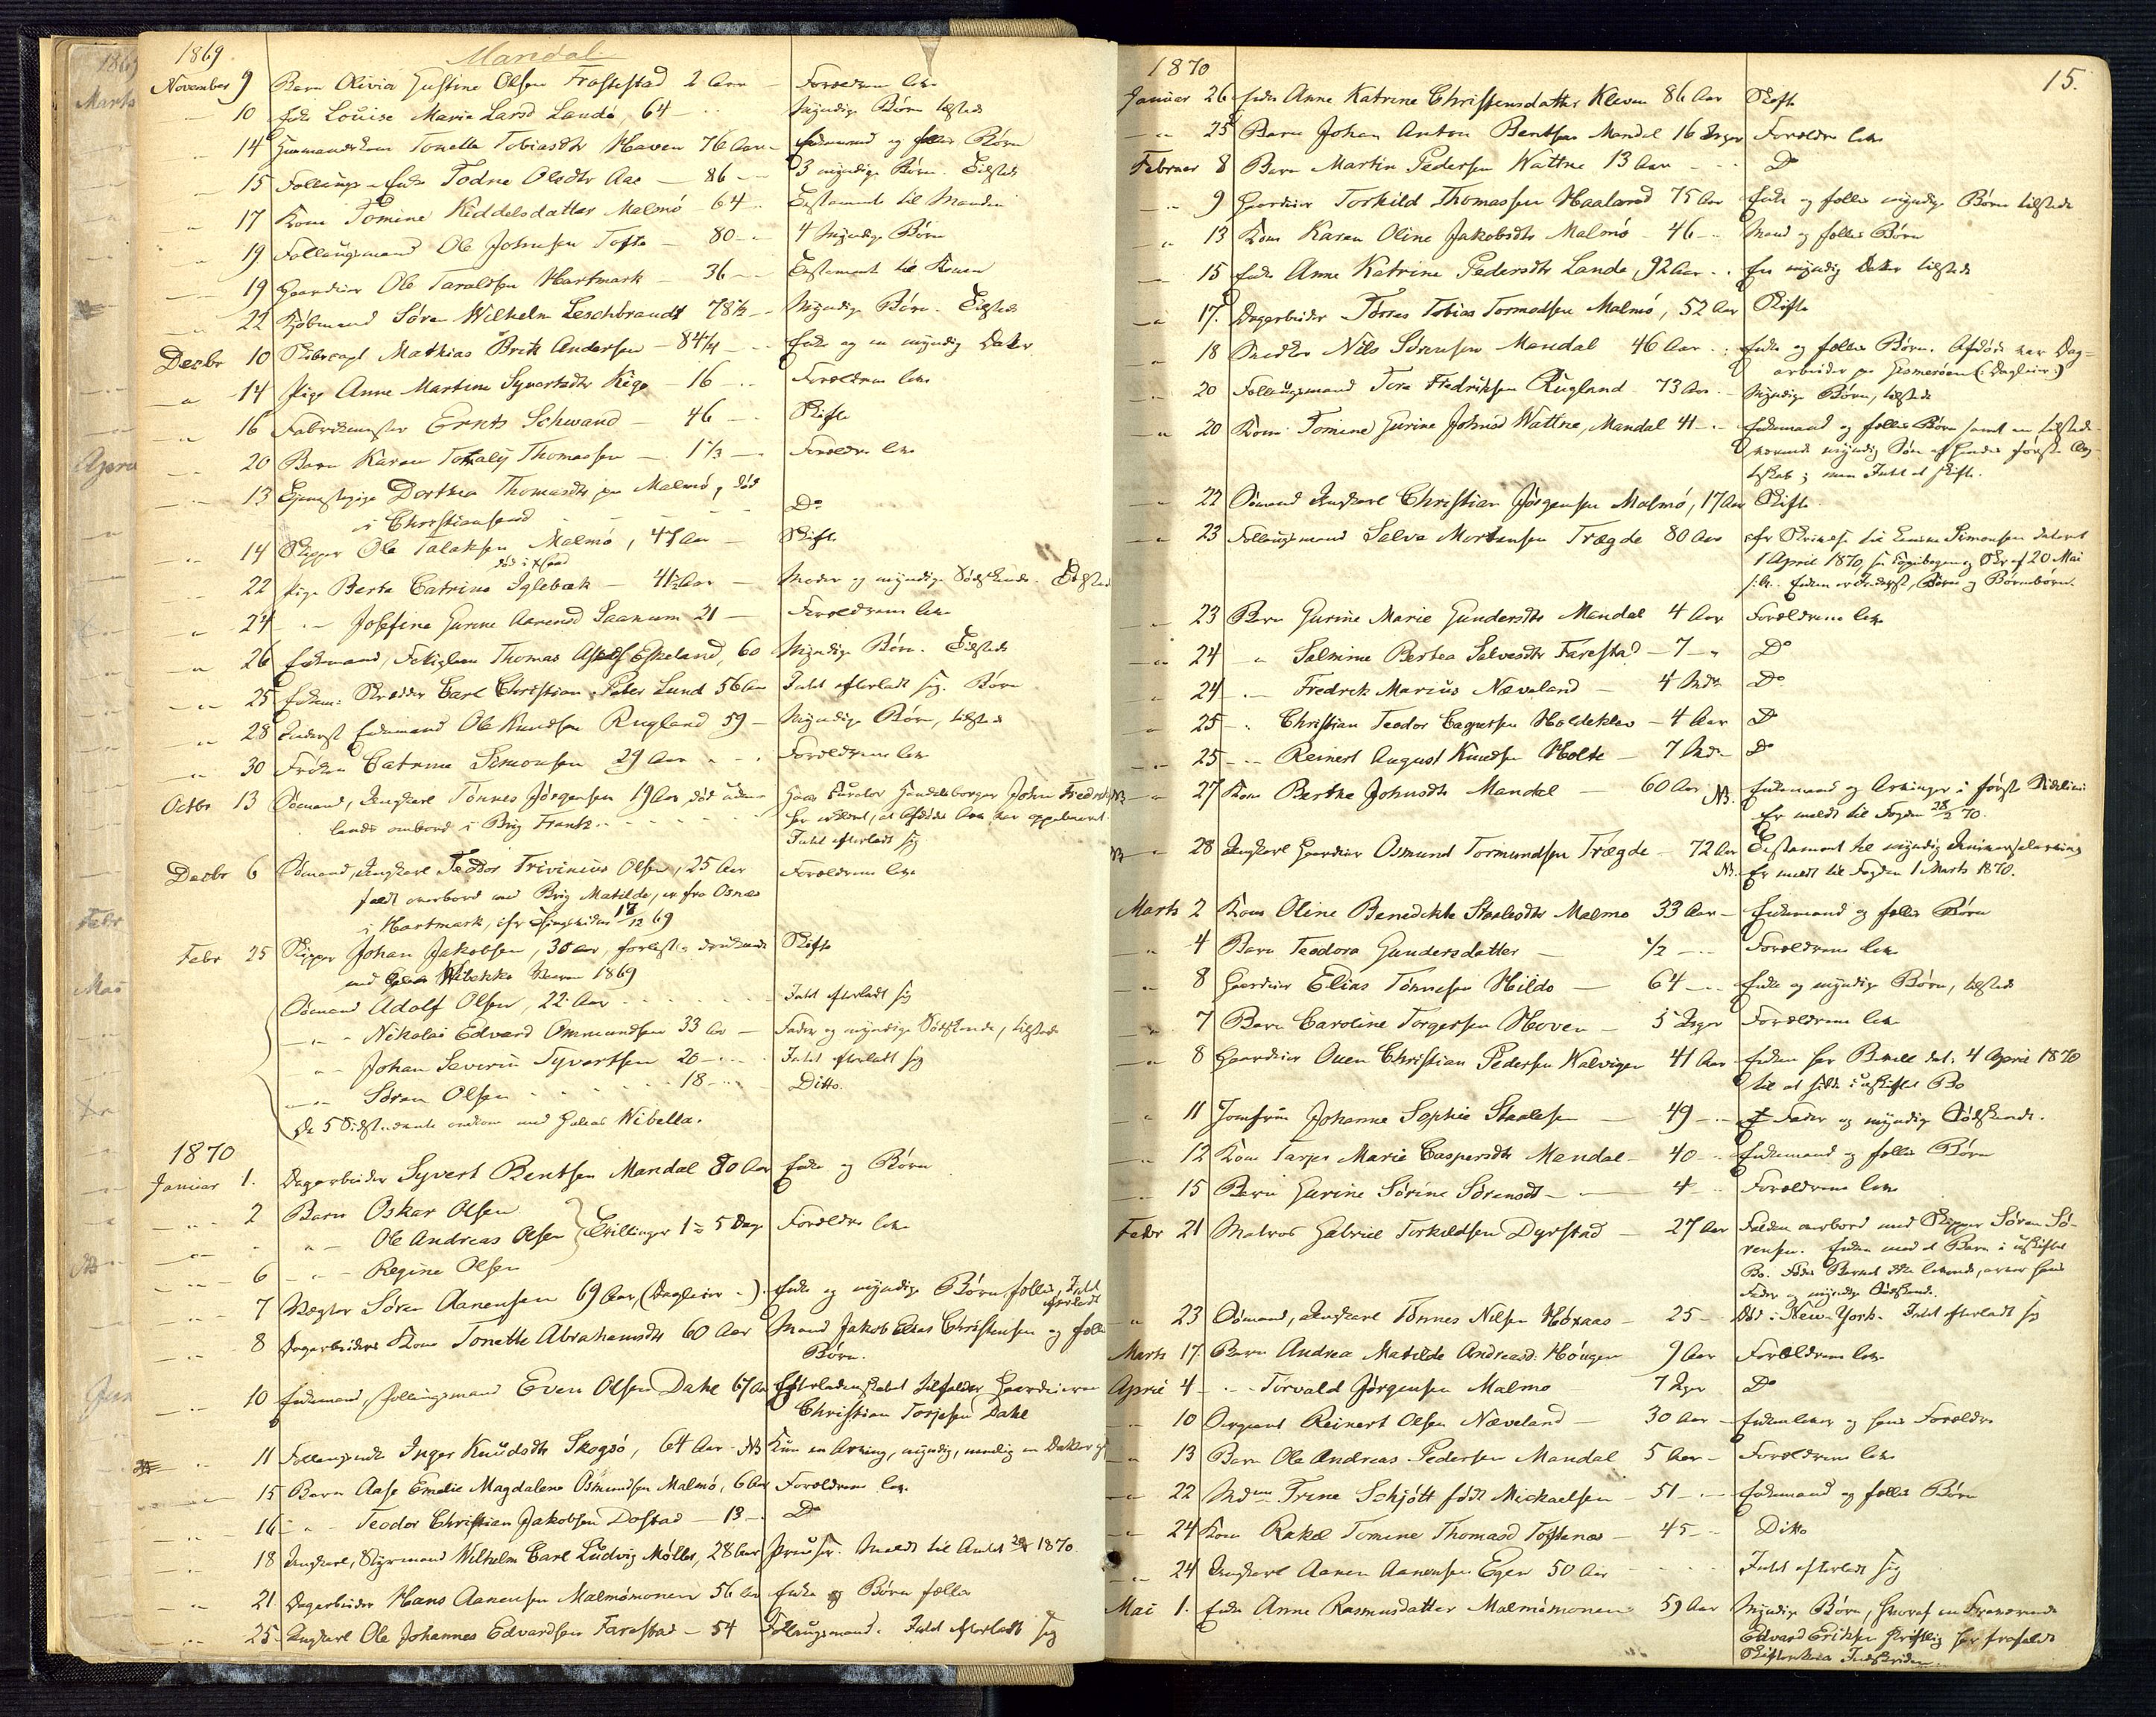 1869 Mandal
November 9 Barn Olivia Gustine Olsen Frostestad 2 Aar – Forældrene leve
10 Enke Louise Marie Larsd Lande, 64 – Myndige Børn tilstede
14 Huusmandskone Tonette Tobiasdtr Haven 76 Aar – Enkemand og fælles Børn
15 Follaugs-Enke Todne Olsdtr Aas – 86 – 3 myndige Børn. Tilstede
17 Kone Tomine Keddelsdatter Malmö – 64 – Testamente til Manden
19 Follaugsmand Ole Johnsen Tofte – 80 – 4 Myndige Børn
19 Gaardeier Ole Taraldsen Hartmark – 36 – Testament til Konen
22 Kjøbmand Søren Wilhelm Leschbrandt 78½ – Myndige Børn. Tilstede
Decbr 10 Skibscapt Mathias Britz Andersen – 84¼ – Enke og en myndig Datter
14 Pige Anne Martine Syvertsdtr Kige – 16 – Forældrene leve
16 Fabrikmester Ernts Schwand – 46 – Skifte
20 Barn Karen Thomassen – 1⅓ – Forældre leve
13 Tjenestepige Dorthea Thomasdtr paa Malmö, død
i Christianssand – Do
14 Skipper Ole Talaksen Malmö, 47 Aar – Skifte
død i Xsand
22 Pige Berta Catrine Iglebæk – 41½ Aar – Moder og myndige Sødskende. Tilstede
24 – Josefine Gurine Aarensd Saanum 21 – Forældrene leve
26 Enkemand, Thomas Eskeland, 60 Myndige Børn. Tilstede
25 Enkem: Skrædder Carl Christian Peter Lund 56 Aar Intet efterladt sig. Børn
28 Inderst Enkemand Ole Knudsen Rugland 59 – Myndige Børn, tilstede
30 Frøken Catrine Simonsen 29 Aar – Forældrene leve
Octbr 13 Sømand, Ungkarl Tönnes Jörgensen 19 Aar, død uden- Hans Curator Handelsborger John Fredriks
lands ombord i Brig Frantz. – har erklæret, at Afdødes Arv var oppebaaret.
Intet efterladt sig
Decbr 6 Sømand, Ungkarl Tedor Trivinius Olsen, 25 Aar Forældrene leve
faldt overbord med Brig Matilde, er fra Osnes
i Hartmark, cfr 17/12 69
Febr 25 Skipper Johan Jakobsen, 30 Aar, forlist og druknede Skifte
med Wibekka 1869
Sømand Adolf Olsen, 22 Aar – Intet efterladt sig
– Nikolai Edvard Ommundsen 33 Aar – Fader og myndige Sødskende, tilstede
– Johan Severin Syvertsen 20 – Intet efterladt sig
– Søren Olsen – 18 – Ditto.
De 5 Sidstnævnte omkom med Galeas Wibekka.
1870
Januar 1. Dagarbeider Syvert Bentsen Mandal 80 Aar Enke og Børn
2 Barn Oskar Olsen
– Ole Andreas Olsen } Tvillinger 1 à 5 Dage Forældre leve
6 – Regine Olsen
7 Vægter Søren Aanensen 69 Aar, (Dagleier) Enke og myndige Børn fælles, Intet
efterladt
8 Dagarbeiders Kone Tonette Abrahamsdtr 60 Aar Mand Jakob Elias Christensen og fælles
Børn.
10 Enkemand, Follaugsmand Even Olsen Dahl 67 Aar Efterladenskabet tilfalder Gaardeieren
Christian Torjesen Dahl
11 Follaugsenke Inger Knudsdtr Skogsö, 64 Aar – NB Kun en Arving, myndig, nemlig en Datter
15 Barn Aase Emelie Magdalene Osmundsen Malmö, 6 Aar Forældrene leve.
16 – Teodor Christian Jakobsen Dostad – 13 – Do
18 Ungkarl, Styrmand Wilhelm Carl Ludvig Møller, 28 Aar Meldt til Amtet 1870.
21 Dagarbeider Hans Aanensen Malmömonen 56 Aar Enke og Børn fælles
25 Ungkarl Ole Johannes Edvardsen Farestad – 54 Follaugsmand. Intet efterladt sig
1870 15.
Januar 26 Enke Anne Katrine Christensdatter Kleven 86 Aar Skifte
25 Barn Johan Anton Bentsen Mandal 16 Dage Forældre leve
Februar 8 Barn Martin Pedersen Wattne 13 Aar – Do
9 Gaardeier Torkild Thomassen Haaland 75 Aar Enke og fælles myndige Børn tilstede
13 Kone Karen Oline Jakobsdtr Malmö – 46 – Mand og fælles Børn
15 Enke Anne Katrine Pedersdtr Lande, 92 Aar – En myndig Datter tilstede
17. Dagarbeider Törres Tobias Tormodsen Malmö, 52 Aar Skifte
18 Snedker Nils Sörensen Mandal 46 Aar – Enke og fælles Børn. Afdøde var Dag-
arbeider paa Gismeröen (: Dagleier :)
20 Follaugsmand Tore Fredriksen Rugland 73 Aar – Myndige Børn, tilstede
20 Kone Tomine Gurine Johnsd Wattne, Mandal 41 – Enkemand og fælles Børn samt en tilstede-
værende myndig Søn af hendes første Ægte-
skab; men Intet at skifte.
22 Sømand Ungkarl Christian Jörgensen Malmö, 17 Aar Skifte.
23 Follaugsmand Salve Mortensen Trægde 80 Aar cfr Skrivelse fra Simonsen dateret
1 April 1870, se Copiebogen og Skr af 20 Mai
s. A. Enken er Inderst, Børn og Børnebørn.
23 Barn Gurine Marie Gundersdtr Mandal 4 Aar Forældrene leve
24 – Salmine Bertea Salvesdtr Farestad – 7 – Do
24 – Fredrik Marius Næveland – 4 Mdr Do
25 – Christian Teodor Caspersen Holdeklev – 4 Aar Do
25 – Reinert August Knudsen Holte – 7 Mdr Do
NB – 27 Kone Berthe Johnsdtr Mandal – 60 Aar NB. Enkemand og Arvinger i første Sidelinie
Er meldt til Fogden 28/2 70.
NB – 28 Ungkarl Gaardeier Osmund Tormundsen Trægde – 72 Aar Testament til myndig Universalarving
NB. Er meldt til Fogden 1 Marts 1870.
Marts 2 Kone Oline Benedikte Staalesdtr Malmø 33 Aar – Enkemand og fælles Børn
4 Barn Teodora Gundersdatter – ½ – Forældrene leve
8 Gaardeier Elias Tönnesen Hildo – 64 – Enke og myndige Børn, tilstede
7 Barn Caroline Torgersen Hoven – 5 Dage Forældrene leve
8 Gaardeier Ouen Christian Pedersen Valvigen 41 Aar Enken har Bevill. dat. 4 April 1870
til at sidde i uskiftet Bo
11 Jomfru Johanne Sophie Staalesen – 49 – Fader og myndige Sødskende.
12 Kone Tarjer Marie Caspersdtr Mandal – 40 – Enkemand og fælles Børn
15 Barn Gurine Sörine Sörensdt – 4 – Forældrene leve
Febr 21 Matros Gabriel Torkildsen Dyrstad – 27 Aar Falden overbord med Skipper Sören Sö-
rensen. Enken med et Barn i uskiftet
Bo. Fødes Barnet ikke levende, arver hans
Fader og myndige Sødskende.
23 Sømand, Ungkarl Tönnes Nilsen Höxaas – 25 – Død i New-York. Intet efterladt sig
Marts 17. Barn Andrea Matilde Andreasd: Höugen 9 Aar Forældrene leve
April 4 – Torvald Jørgensen Malmo 7 Dage Do
10 Sergeant Reinert Olsen Næveland – 30 Aar – Enken lever og hans Forældre
13 Barn Ole Andreas Pedersen Mandal 5 Aar – Forældrene leve
22 Mdme Trine Schjött født Mickaelsen – 51 – Enkemand og fælles Børn
24 Kone Rakel Tomine Thomasd Toftenes – 45 – Ditto
24 Ungkarl Aanen Aanensen Egen 50 Aar – Intet efterladt sig
Mai 1. Enke Anne Rasmusdatter Malmömonen 59 Aar Myndige Børn, hvoraf en Fraværende
Edvard Eriksen skriftlig har frafaldt
Skifterettens Indskriden.